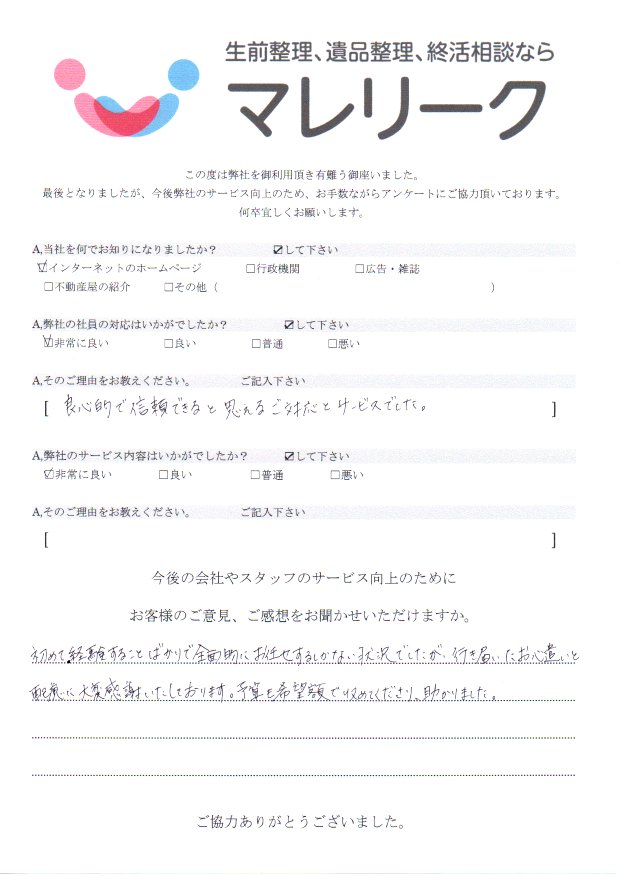 生前整理、遺品整理、終活相談なら
マレリーク
この度は弊社を御利用頂き有難う御座いました。
最後となりましたが、今後弊社のサービス向上のため、お手数ながらアンケートにご協力頂いております。
何卒宜しくお願いします。
A,当社を何でお知りになりましたか? ☑して下さい
☑インターネットのホームページ □行政機関 □広告・雑誌
□不動産屋の紹介 □その他( )
A,弊社の社員の対応はいかがでしたか? ☑して下さい
☑非常に良い □良い □普通 □悪い
A,そのご理由をお教えください。 ご記入下さい
[ 良心的で信頼できると思えるご対応とサービスでした。 ]
A,弊社のサービス内容はいかがでしたか? ☑して下さい
☑非常に良い □良い □普通 □悪い
A,そのご理由をお教えください。 ご記入下さい
[ ]
今後の会社やスタッフのサービス向上のために
お客様のご意見、ご感想をお聞かせいただけますか。
初めて経験することばかりで全面的にお任せするしかない状況でしたが、行き届いたお心遣いと
配慮に大変感謝いたしております。予算も希望額で収めてくださり、助かりました。
ご協力ありがとうございました。